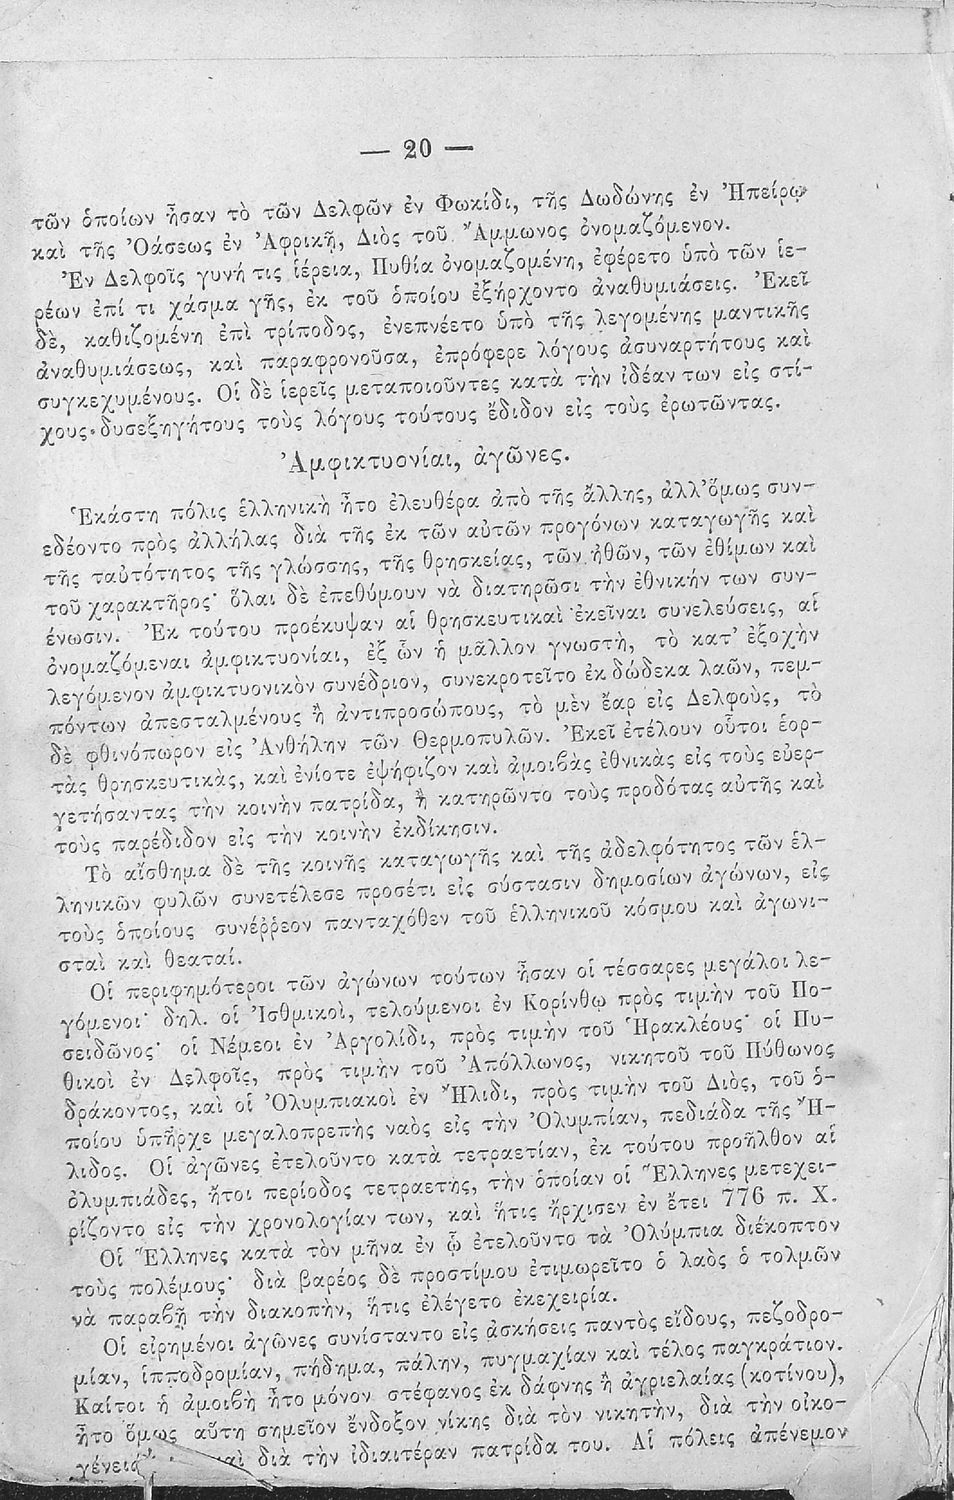 — 20 —
τῶν ὁποίων ἦσαν τὸ τῶν Δελφῶν ἐν Φωκίδι, τῆς Δωδώνης ἐν Ἠπείρῳ
καὶ τῆς Ὀάσεως ἐν Ἀφρικῇ, Διὸς τοῦ Ἄμμωνος ὀνομαζόμενον.
Ἐν Δελφοῖς γυνή τις ἱέρεια, Πυθία ὀνομαζομένη, ἐφέρετο ὑπὸ τῶν ἱε-
ρέων ἐπί τι χάσμα γῆς, ἐκ τοῦ ὁποίου ἐξήρχοντο ἀναθυμιάσεις. Ἐκεῖ
δὲ, καθιζομένη ἐπὶ τρίποδος, ἐνεπνέετο ὑπὸ τῆς λεγομένης μαντικῆς
ἀναθυμιάσεως, καὶ παραφρονοῦσα, ἐπρόφερε λόγους ἀσυναρτήτους καὶ
συγκεχυμένους. Οἱ δὲ ἱερεῖς μεταποιοῦντες κατὰ τὴν ἰδέαν των εἰς στί-
χους δυσεξηγήτους τοὺς λόγους τούτους ἔδιδον εἰς τοὺς ἐρωτῶντας.
Ἀμφικτυονίαι, ἀγῶνες.
Ἑκάστη πόλις ἑλληνικὴ ἦτο ἐλευθέρα ἀπὸ τῆς ἄλλης, ἀλλ' ὅμως συν-
εδέοντο πρὸς ἀλλήλας διὰ τῆς ἐκ τῶν αὐτῶν προγόνων καταγωγῆς καὶ
τῆς ταὐτότητος τῆς γλώσσης, τῆς θρησκείας, τῶν ἠθῶν, τῶν ἐθίμων καὶ
τοῦ χαρακτῆρος· ὅλαι δὲ ἐπεθύμουν νὰ διατηρῶσι τὴν ἐθνικήν των συν-
ένωσιν. Ἐκ τούτου προέκυψαν αἱ θρησκευτικαὶ ἐκεῖναι συνελεύσεις, αἱ
ὀνομαζόμεναι ἀμφικτυονίαι, ἐξ ὧν ἡ μᾶλλον γνωστὴ, τὸ κατ' ἐξοχὴν
λεγόμενον ἀμφικτυονικὸν συνέδριον, συνεκροτεῖτο ἐκ δώδεκα λαῶν, πεμ-
πόντων ἀπεσταλμένους ἢ ἀντιπροσώπους, τὸ μὲν ἔαρ εἰς Δελφοὺς, τὸ
δὲ φθινόπωρον εἰς Ἀνθήλην τῶν Θερμοπυλῶν. Ἐκεῖ ἐτέλουν οὗτοι ἑορ-
τὰς θρησκευτικὰς, καὶ ἐνίοτε ἐψήφιζον καὶ ἀμοιβὰς ἐθνικὰς εἰς τοὺς εὐερ-
γετήσαντας τὴν κοινὴν πατρίδα, ἢ κατηρῶντο τοὺς προδότας αὐτῆς καὶ
τοὺς παρέδιδον εἰς τὴν κοινὴν ἐκδίκησιν.
Τὸ αἴσθημα δὲ τῆς κοινῆς καταγωγῆς καὶ τῆς ἀδελφότητος τῶν ἑλ-
ληνικῶν φυλῶν συνετέλεσε προσέτι εἰς σύστασιν δημοσίων ἀγώνων, εἰς
τοὺς ὁποίους συνέῤῥεον πανταχόθεν τοῦ ἑλληνικοῦ κόσμου καὶ ἀγωνι-
σταὶ καὶ θεαταί.
Οἱ περιφημότεροι τῶν ἀγώνων τούτων ἦσαν οἱ τέσσαρες μεγάλοι λε-
γόμενοι· δηλ. οἱ Ἰσθμικοὶ, τελούμενοι ἐν Κορίνθῳ πρὸς τιμὴν τοῦ Πο-
σειδῶνος· οἱ Νέμεοι ἐν Ἀργολίδι, πρὸς τιμὴν τοῦ Ἡρακλέους· οἱ Πυ-
θικοὶ ἐν Δελφοῖς, πρὸς τιμὴν τοῦ Ἀπόλλωνος, νικητοῦ τοῦ Πύθωνος
δράκοντος, καὶ οἱ Ὀλυμπιακοὶ ἐν Ἤλιδι, πρὸς τιμὴν τοῦ Διὸς, τοῦ ὁ-
ποίου ὑπῆρχε μεγαλοπρεπὴς ναὸς εἰς τὴν Ὀλυμπίαν, πεδιάδα τῆς Ἤ-
λιδος. Οἱ ἀγῶνες ἐτελοῦντο κατὰ τετραετίαν, ἐκ τούτου προῆλθον αἱ
ὀλυμπιάδες, ἤτοι περίοδος τετραετὴς, τὴν ὁποίαν οἱ Ἕλληνες μετεχει-
ρίζοντο εἰς τὴν χρονολογίαν των, καὶ ἥτις ἤρχισεν ἐν ἔτει 776 π. Χ.
Οἱ Ἕλληνες κατὰ τὸν μῆνα ἐν ᾧ ἐτελοῦντο τὰ Ὀλύμπια διέκοπτον
τοὺς πολέμους· διὰ βαρέος δὲ προστίμου ἐτιμωρεῖτο ὁ λαὸς ὁ τολμῶν
νὰ παραβῇ τὴν διακοπὴν, ἥτις ἐλέγετο ἐκεχειρία.
Οἱ εἰρημένοι ἀγῶνες συνίσταντο εἰς ἀσκήσεις παντὸς εἴδους, πεζοδρο-
μίαν, ἱπποδρομίαν, πήδημα, πάλην, πυγμαχίαν καὶ τέλος παγκράτιον.
Καίτοι ἡ ἀμοιβὴ ἦτο μόνον στέφανος ἐκ δάφνης ἢ ἀγριελαίας (κοτίνου),
ἦτο ὅμως αὕτη σημεῖον ἔνδοξον νίκης διὰ τὸν νικητὴν, διὰ τὴν οἰκο-
διὰ τὴν ἰδιαιτέραν πατρίδα του. Αἱ πόλεις ἀπένεμον